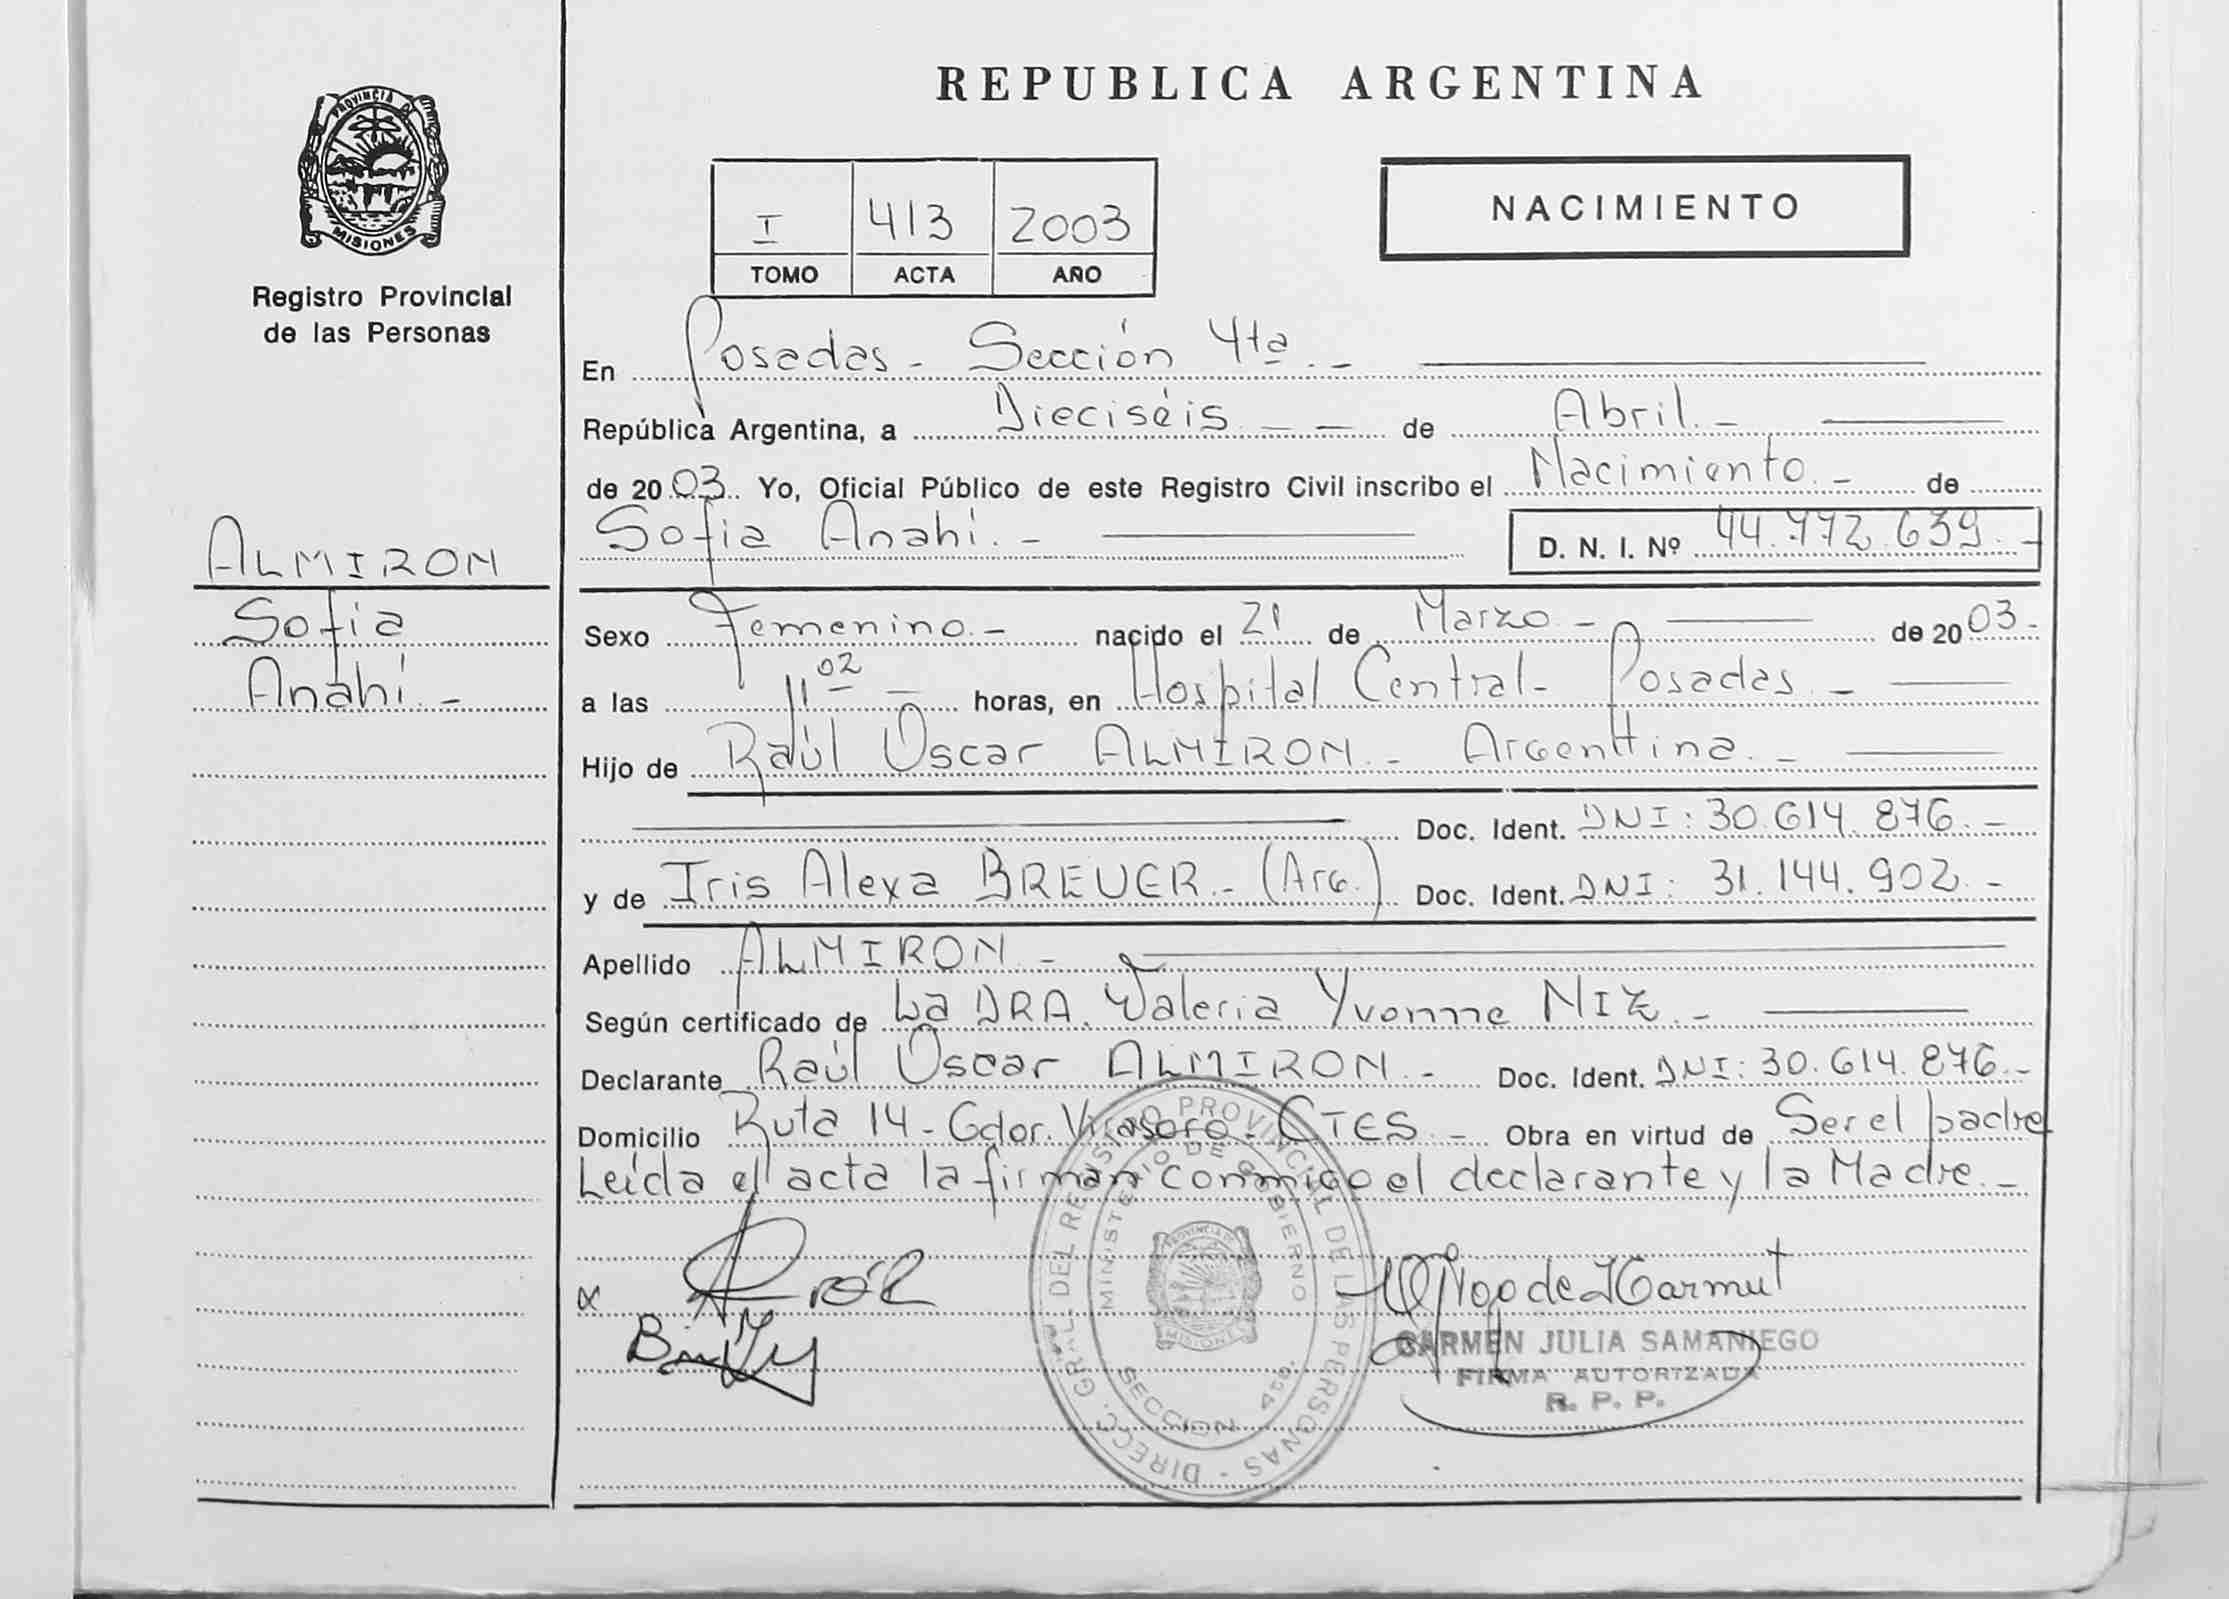 REPUBLICA ARGENTINA
PROVINCIA DE
MISIONES
Registro Provincial
de las Personas
I 413 2003
TOMO ACTA AÑO
NACIMIENTO
En Posadas - Sección 4ta. -
República Argentina, a Dieciséis - - de Abril. -
de 2003. Yo, Oficial Público de este Registro Civil inscribo el Nacimiento. - de
Sofia Anahí. - D. N. I. Nº 44.772.639. -
ALMIRON
Sofia
Anahí. -
Sexo Femenino. - nacido el 21 de Marzo - de 2003. -
a las 11 02 - horas, en Hospital Central - Posadas. -
Hijo de Raúl Oscar ALMIRON. - Argenttina. -
Doc. Ident. DNI: 30.614.876. -
y de Iris Alexa BREUER. - (Arg.) Doc. Ident. DNI: 31.144.902. -
Apellido ALMIRON. -
Según certificado de La DRA. Valeria Yvonne NIZ. -
Declarante Raúl Oscar ALMIRON. - Doc. Ident. DNI: 30.614.876. -
Domicilio Ruta 14 - Gdor. Virasoro - CTES. - Obra en virtud de Ser el padre
Leída el acta la firman conmigo el declarante y la Madre. -
DIRECC. GRAL. DEL REGISTRO PROVINCIAL DE LAS PERSONAS -
MINISTERIO DE GOBIERNO
PROVINCIA DE
MISIONES
SECCION 4ta.
CARMEN JULIA SAMANIEGO
FIRMA AUTORIZADA
R. P. P.